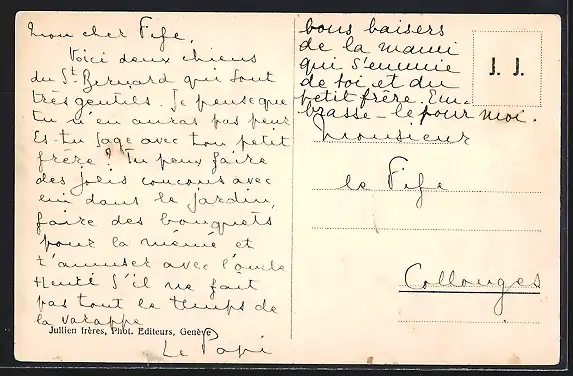 Mon cher Fife,
Voici deux chiens
du St-Bernard qui sont
très gentils. Je pense que
tu n'en auras pas peur
Es-tu sage avec ton petit
frère ? Tu peux faire
des jolis coucous avec
lui dans le jardin,
faire des bouquets
pour la mémé et
t'amuser avec l'oncle
Henri s'il ne fait
pas tout le temps de
la varappe
Le Papi
Jullien frères, Phot. Editeurs, Genève
bons baisers
de la mami
qui s'ennuie
de toi et du
petit frère. Em-
brasse-le pour moi.
J. J.
Monsieur
le Fife
Collonges